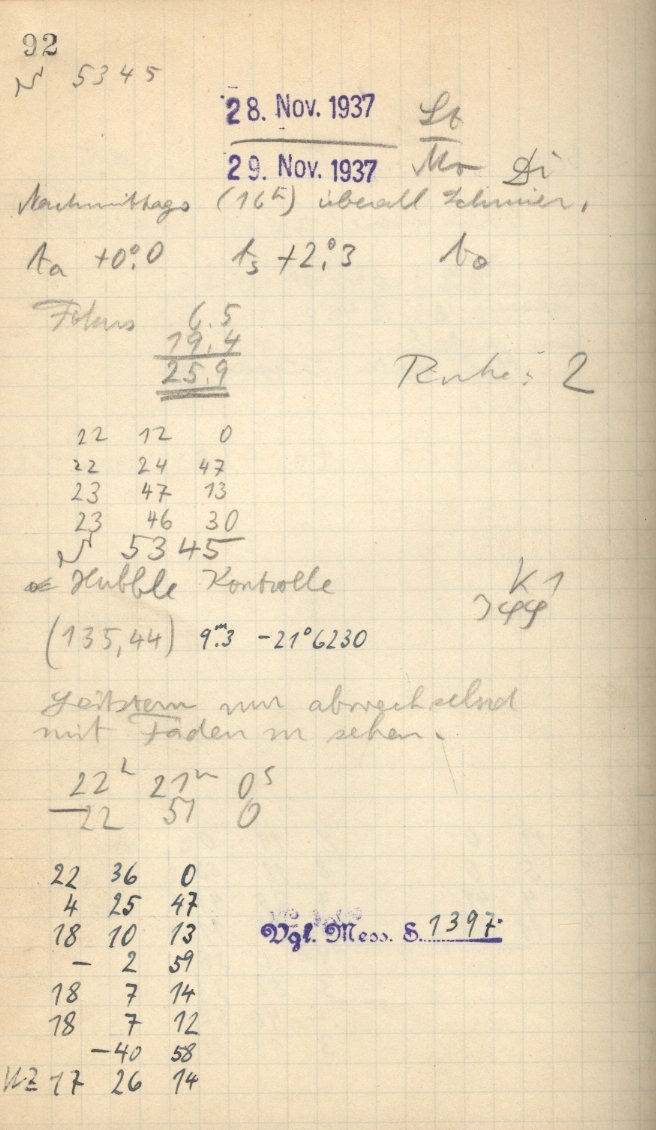 92
N 5345
28. Nov. 1937
29. Nov. 1937 Mo Di
Nachmittags (16h) überall Schmier.
ta +0°.0 ts +2°.3 to
Fokus 6.5
19.4
25.9
Ruhe: 2
22 12 0
22 24 47
23 47 13
23 46 30
N 5345
Hubble Kontrolle
K1
(135,44) 9m.3 -21°6230
Leitstern nur abwechselnd
mit Faden zu sehen.
22h 21m 0s
22 51 0
22 36 0
4 25 47
18 10 13
- 2 59
18 7 14
18 7 12
-40 58
17 26 14
Vgl. Mess. S. 1397